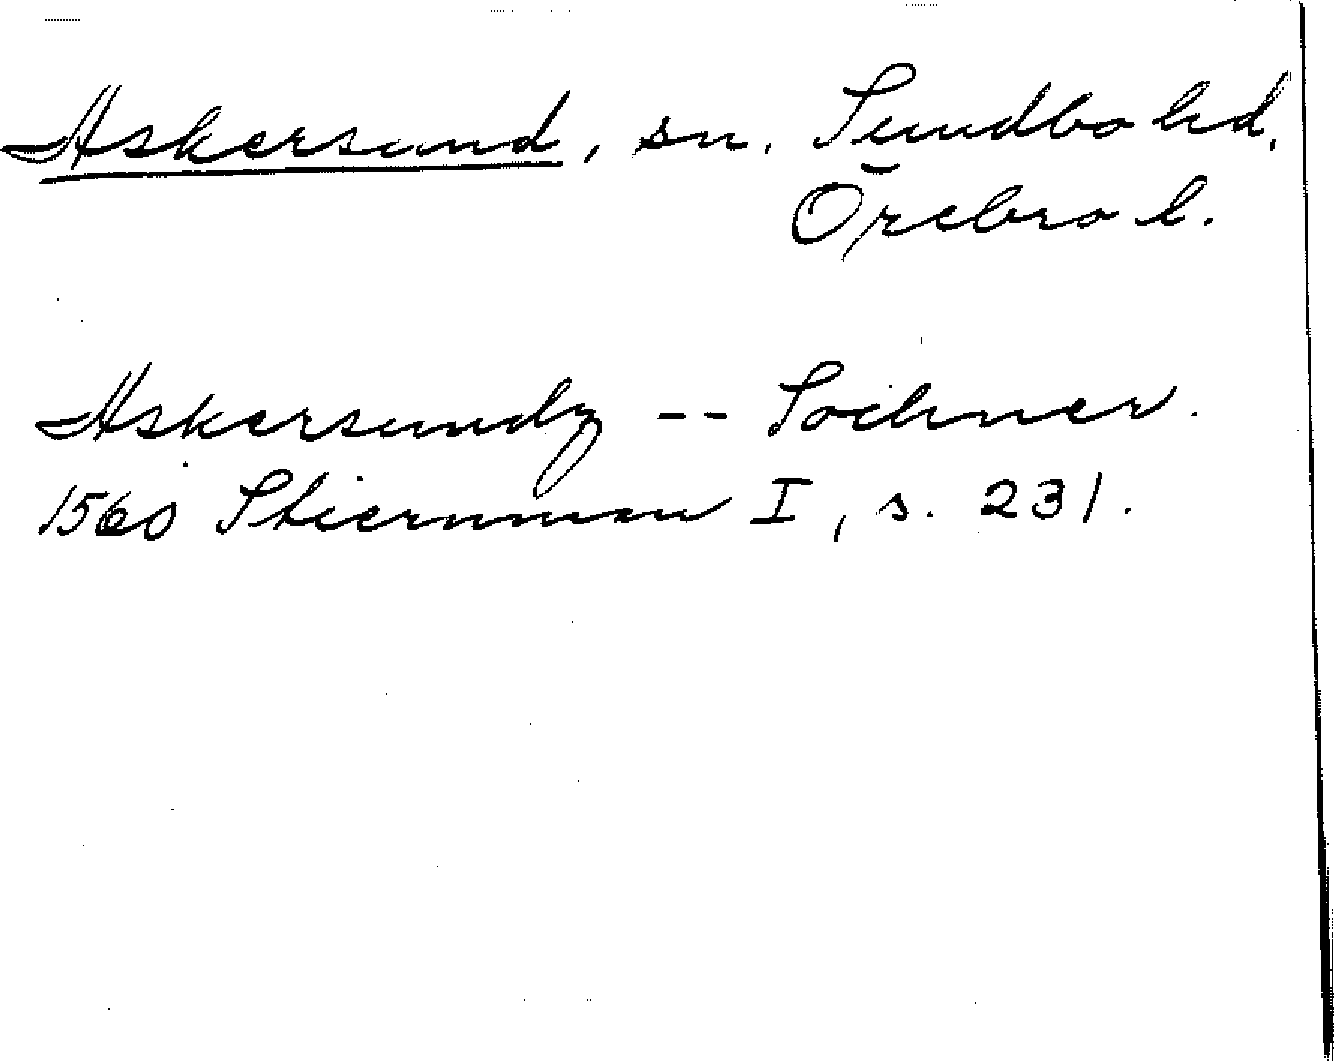 Askersund, sn. Sundbo hd,
Örebro l.
Askersundz -- Sochner.
1560 Stiernman I, s. 231.